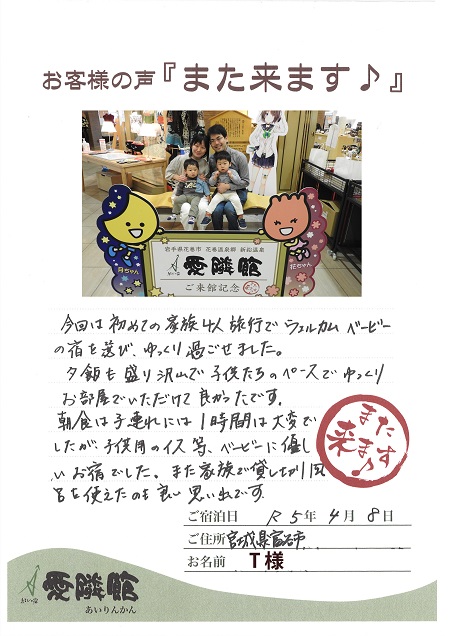 お客様の声『また来ます♪』
月ちゃん
花ちゃん
岩手県花巻市 花巻温泉郷 新鉛温泉
愛隣館
ご来館記念
今回は初めての家族4人旅行でウェルカムベービー
の宿を選び、ゆっくり過ごせました。
夕飯も盛り沢山で子供たちのペースでゆっくり
お部屋でいただけて良かったです。
朝食は子連れには1時間は大変で
したが子供用のイス等、ベービーに優し
いお宿でした。また家族で貸し切り風
呂を使えたのも良い思い出です。
また
来ます♪
ご宿泊日 R5年4月8日
ご住所 宮城県富谷市
お名前 T様
愛隣館
あいりんかん